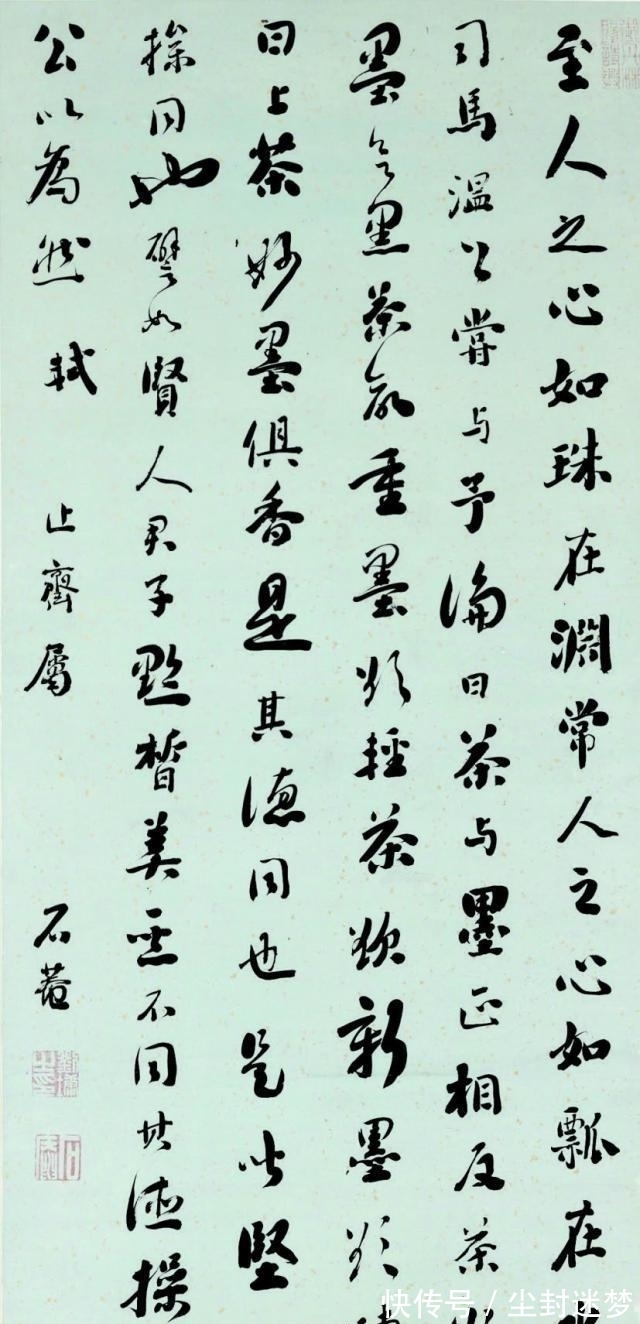 至人之心如珠在淵常人之心如瓢在
司馬温公嘗与予論曰茶与墨正相反茶
墨欲黑茶欲重墨欲輕茶欲新墨欲
曰上茶妙墨俱香是其德同也是皆堅
操同也譬如賢人君子黔皙美惡不同其德操
公以為然 軾 止齋屬 石菴
快传号／尘封迷梦